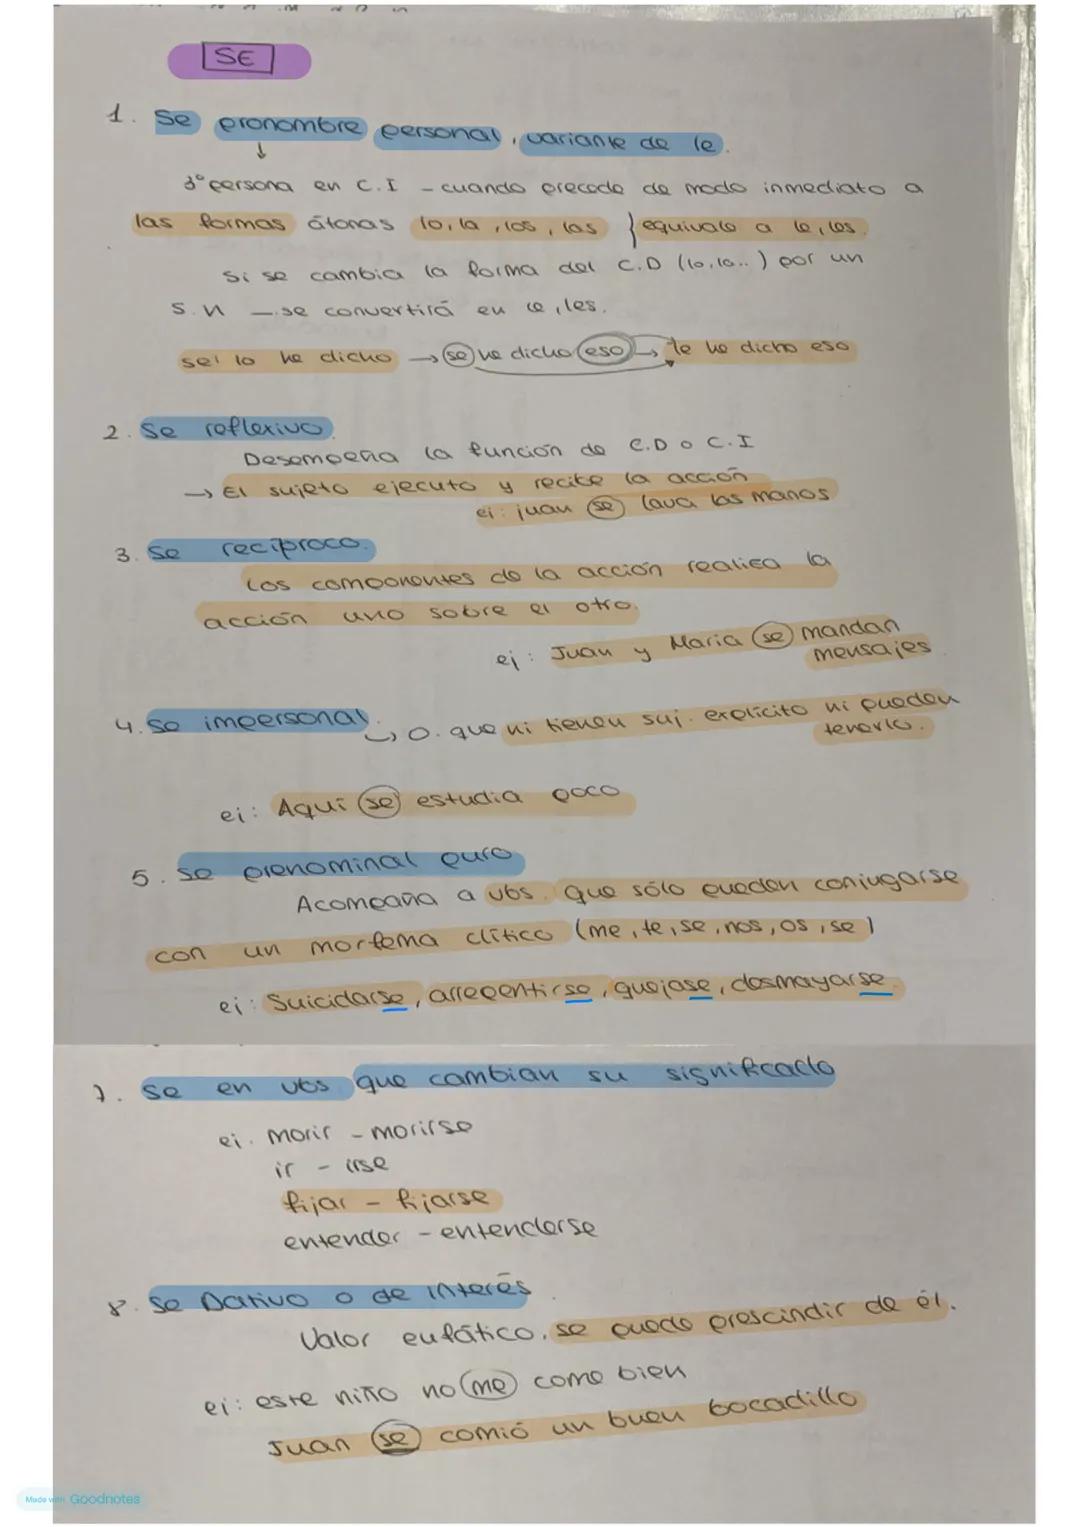 SE
1. Se pronombre personal, variante de le.
↓
3ª persona en C.I - cuando precede de modo inmediato a
las formas átonas lo, la, los, las } equivale a le, les.
Si se cambia la forma del C.D (lo, la..) por un
S.N — se convertirá en le, les.
se! lo he dicho → se he dicho eso → le he dicho eso
2. Se reflexivo.
Desempeña la función de C.D o C.I
→ El sujeto ejecuta y recibe la acción
ej: Juan se lava las manos
3. Se recíproco.
Los componentes de la acción realiza la
acción uno sobre el otro.
ej: Juan y Maria se mandan
mensajes.
4. Se impersonal.
↳ O. que ni tienen suj. explícito ni pueden
tenerlo.
ej: Aquí se estudia poco
5. Se pronominal puro
Acompaña a vbs. que sólo pueden conjugarse
con un morfema clítico (me, te, se, nos, os, se)
ej: Suicidarse, arrepentirse, quejase, desmayarse.
7. Se en vbs que cambian su significado
ej. morir - morirse
ir - irse
fijar - fijarse
entender - entenderse
8. Se Dativo o de interés.
Valor enfático, se puede prescindir de él.
ej: este niño no me come bien
Juan se comió un buen bocadillo
Made with Goodnotes